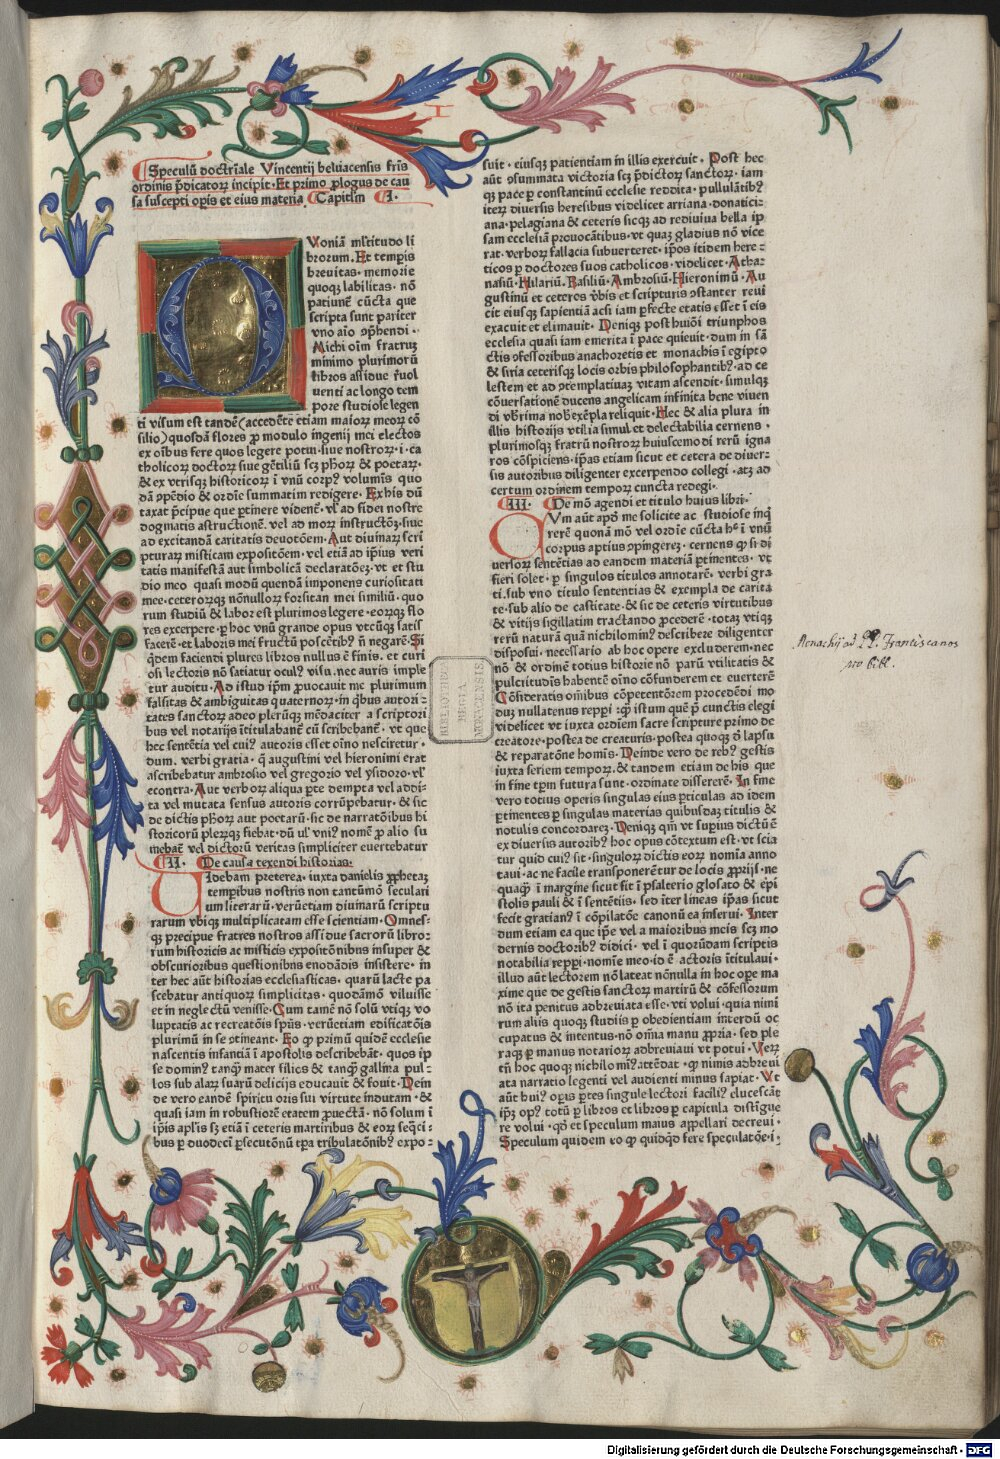 I
Speculū doctrīale Vincentij beluacensis fr̄is
ordinis p̄dicatoꝝ incipit. Et primo ꝓlogus de cau
sa suscepti op̄is et eius materia Capitl̄m I.
Quoniā ml̄titudo li
brorum. Et tempis
breuitas. memorie
quoqꝫ labilitas. nō
patiunt̄ cūcta que
scripta sunt pariter
vno aīo ꝯp̄hendi.
Michi oīm fratrꝫ
minimo plurimorū
libros assidue r̄uol
uenti ac longo tem
pore studiose legen
ti visum est tandē (accedēte etiam maioꝝ meoꝝ cō
silio) quosdā flores ꝓ modulo ingenij mei electos
ex oībus fere quos legere potui. siue nostroꝝ. i. ca
tholicoꝝ doctoꝝ siue gētiliū scꝫ ph̄oꝝ & poetaꝝ.
& ex vtrisqꝫ historicoꝝ ī vnū corpꝰ volumīs quo
dā ꝯpēdio & ordīe summatim redigere. Ex his dū
taxat p̄cipue que ꝑtinere vident̄. vl̓ ad fidei nostre
dogmatis astructionē. vel ad moꝝ instructōꝫ. siue
ad excitandā caritatis deuotōem. Aut diuinaꝝ scri
pturaꝝ misticam expositōem. vel etiā ad ip̄ius veri
tatis manifestā aut simbolicā declaratōeꝫ. vt et stu
dio meo quasi modū quendā imponens curiositati
mee. ceteroꝝqꝫ nōnulloꝝ forsitan mei similiū. quo
rum studiū & laboꝛ est plurimos legere. eoꝝqꝫ flo
res excerpere. ꝑ hoc vnū grande opus vtcūqꝫ satis
facerē. et laboris mei fructū poscētibꝰ nō negarē. Si
q̄dem faciendi plures libros nullus ē finis. et curi
osi lectoris nō satiatur oculꝰ visu. nec auris imple
tur auditu. Ad istud ip̄m ꝓuocauit me plurimum
falsitas & ambiguitas quaternoꝝ. in q̄bus autori
tates sanctoꝝ adeo plerūqꝫ mēdaciter a scriptori
bus vel notarijs ītitulabanẜ cū scribebanẜ. vt que
hec sentētia vel cuiꝰ autoris esset oīno nesciretur.
dum. verbi gratia. q̄ augustini vel hieronimi erat
ascribebatur ambrosio vel gregorio vel ysidoro. vl̓
econtra. Aut verboꝝ aliqua ꝑte dempta vel addi
ta vel mutata sensus autoris corrūpebatur. & sic
de dictis ph̄oꝝ aut poetarū. sic de narratōibus hi
storicorū plerꝫqꝫ fiebat. dū vl̓ vniꝰ nomē ꝓ alio su
mebat̄ vel dictorū veritas simpliciter euertebatur
II. De causa texendi historias.
Uidebam preterea. iuxta danielis ꝓphetaꝫ
tempibus nostris non tantūmō seculari
um literarū. verūetiam diuinarū scriptu
rarum vbiqꝫ multiplicatam esse scientiam. Omnes
qꝫ precipue fratres nostros assidue sacrorū libro
rum historicis ac misticis expositōnibus insuper &
obscurioribus questionibus enodādis insistere. in
ter hec aūt historias ecclesiasticas. quarū lacte pa
scebatur antiquoꝝ simplicitas. quodāmō viluisse
et in neglectū venisse. Cum tamē nō solū vtiqꝫ vo
luptatis ac recreatōis spūs. verūetiam edificatōis
plurimū in se ꝯtineant. Eo qꝫ primū quidē ecclesie
nascentis infantiā ī apostolis describebāt. quos ip
se dominꝰ tanqꝫ mater filios & tanqꝫ gallina pul
los sub alaꝝ suarū delicijs educauit & fouit. Dein
de vero eandē spiritu oris sui virtute indutam. &
quasi iam in robustiorē etatem ꝓuectā. nō solum ī
ip̄is aplīs sꝫ etiā ī ceteris martiribus & eoꝝ seq̄ci
bus ꝑ duodecī ꝑsecutōnū tꝑa tribulatōnibꝰ expo
suit. eiusqꝫ patientiam in illis exercuit. Post hec
aūt ꝯsummata victoria scꝫ p̄dictoꝝ sanctoꝝ. iam
qꝫ pace ꝑ constantinū ecclesie reddita. pullulātibꝰ
iteꝝ diuersis heresibus videlicet arriana. donatici
ana. pelagiana & ceteris sicqꝫ ad rediuiua bella ip
sam ecclesiā prouocātibus. vt quaꝫ gladius nō vice
rat. verboꝝ fallacia subuerteret. ip̄os itidem here
ticos ꝑ doctores suos catholicos. videlicet. Atha
nasiū. Hilariū. Basiliū. Ambrosiū. Hieronimū. Au
gustinū et ceteros v̄bis et scripturis ꝯstanter reui
cit eiusqꝫ sapientiā acsi iam ꝑfecte etatis esset ī eis
exacuit et elimauit. Deniqꝫ post huiōi triunphos
ecclesia quasi iam emerita ī pace quieuit. dum in sā
ctis ꝯfessoribus anachoretis et monachis ī egipto
& siria ceterisqꝫ locis orbis philosophantibꝰ. ad ce
lestem et ad ꝯtemplatiuaꝫ vitam ascendit. simulqꝫ
cōuersationē ducens angelicam infinita bene viuen
di vb̄rima nob̄ exēpla reliquit. Hec & alia plura in
illis historijs vtilia simul et delectabilia cernens.
plurimosqꝫ fratrū nostroꝝ huiuscemodi rerū igna
ros cōspiciens. ip̄as etiam sicut et cetera de diuer
sis autoribus diligenter excerpendo collegi. atqꝫ ad
certum ordinem temporꝫ cuncta redegi.
III. De mō agendi et titulo huius libri.
Cum aūt apd̓ me solicite ac studiose inq̄
rerē quonā mō vel ordīe cūcta hec ī vnū
corpus aptius ꝯpingereꝫ. cernens ꝙ si di
uersoꝝ sentētias ad eandem materiā ꝑtinentes. vt
fieri solet. ꝑ singulos titulos annotarē. verbi gra
ti. sub vno titulo sententias & exempla de carita
te. sub alio de castitate. & sic de ceteris virtutibus
& vitijs sigillatim tractando ꝓcederē. totaꝫ vtiqꝫ
rerū naturā quā nichilominꝰ describere diligenter
disposui. necessario ab hoc opere excluderem. nec
nō & ordinē totius historie nō parū vtilitatis &
pulcritudīs habentē oīno cōfunderem et euerterē
Cōsideratis omībus cōpetentōrem procedēdi mo
duꝫ nullatenus repperi. ꝙ istum quē p̄ cunctis elegi
videlicet vt iuxta ordīem sacre scripture primo de
creatore. postea de creaturis. postea quoqꝫ d̓ lapsu
& reparatōne homīs. Deinde vero de rebꝰ gestis
iuxta seriem tempoꝝ. & tandem etiam de his que
in fine tꝑm futura sunt. ordinate dissererē. In fine
vero totius operis singulas eius ꝑticulas ad idem
ꝑtinentes ꝑ singulas materias quibusdaꝫ titulis &
notulis concordareꝫ. Deniqꝫ qm̄ vt supius dictū ē
ex diuersis autoribꝰ hoc opus cōtextum est. vt scia
tur quid cuiꝰ sit. singuloꝝ dictis eoꝝ nomīa anno
taui. ac ne facile transponerētur de locis ꝓprijs. ne
quaqꝫ ī margine sicut fit ī psalterio glosato & epi
stolis pauli & ī sententijs. sed iter lineas ip̄as sicut
fecit gratianꝰ ī cōpilatōe canonū ea īnserui. Inter
dum etiam ea que ip̄e vel a maioribus meis scꝫ mo
dernis doctoribꝰ didici. vel ī quorūdam scriptis
notabilia rep̄pi. nomīe meo. id ē actoris ītitulaui.
illud aūt lectorem nō lateat nōnulla in hoc oꝑe ma
xime que de gestis sanctoꝝ martirū & cōfessorum
nō ita penitus adbreuiata esse. vti volui. quia nimi
rum alijs quoqꝫ studijs ꝑ obedientiam interdū oc
cupatus & intentus. nō om̄ia manu ꝓpria. sed ple
raqꝫ ꝑ manus notarioꝝ adbreuiaui vt potui. Veꝝ
tn̄ hoc quoqꝫ nichilo miꝰ attēdat. ꝙ nimis adbreui
ata narratio legenti vel audienti minus sapiat. Vt
aūt huiꝰ oꝑis ꝑtes singule lectori faciliꝰ elucescāt
ip̄ꝫ opꝰ totū ꝑ libros et libros ꝑ capitula distigue
re volui. qd̓ et speculum maius appellari decreui.
Speculum quidem eo ꝙ quidqd̓ fere speculatōe. i.
BIBLIOTHECA
REGIA
MONACENSIS
Monachij ad PP. Franciscanos
pro Bibl.
Digitalisierung gefördert durch die Deutsche Forschungsgemeinschaft - DFG